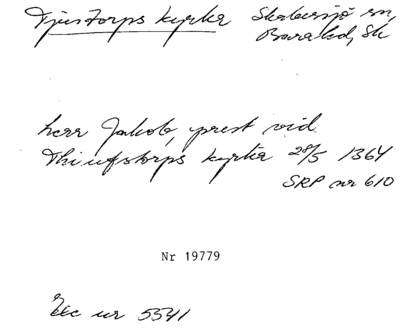 Tjustorps kyrka Skabersjö sn,
Bara hd, Sk
herr Jakob, prest vid
Thiufstorps kyrka 28/5 1364
SRP nr 610
Nr 19779
Exc nr 5541